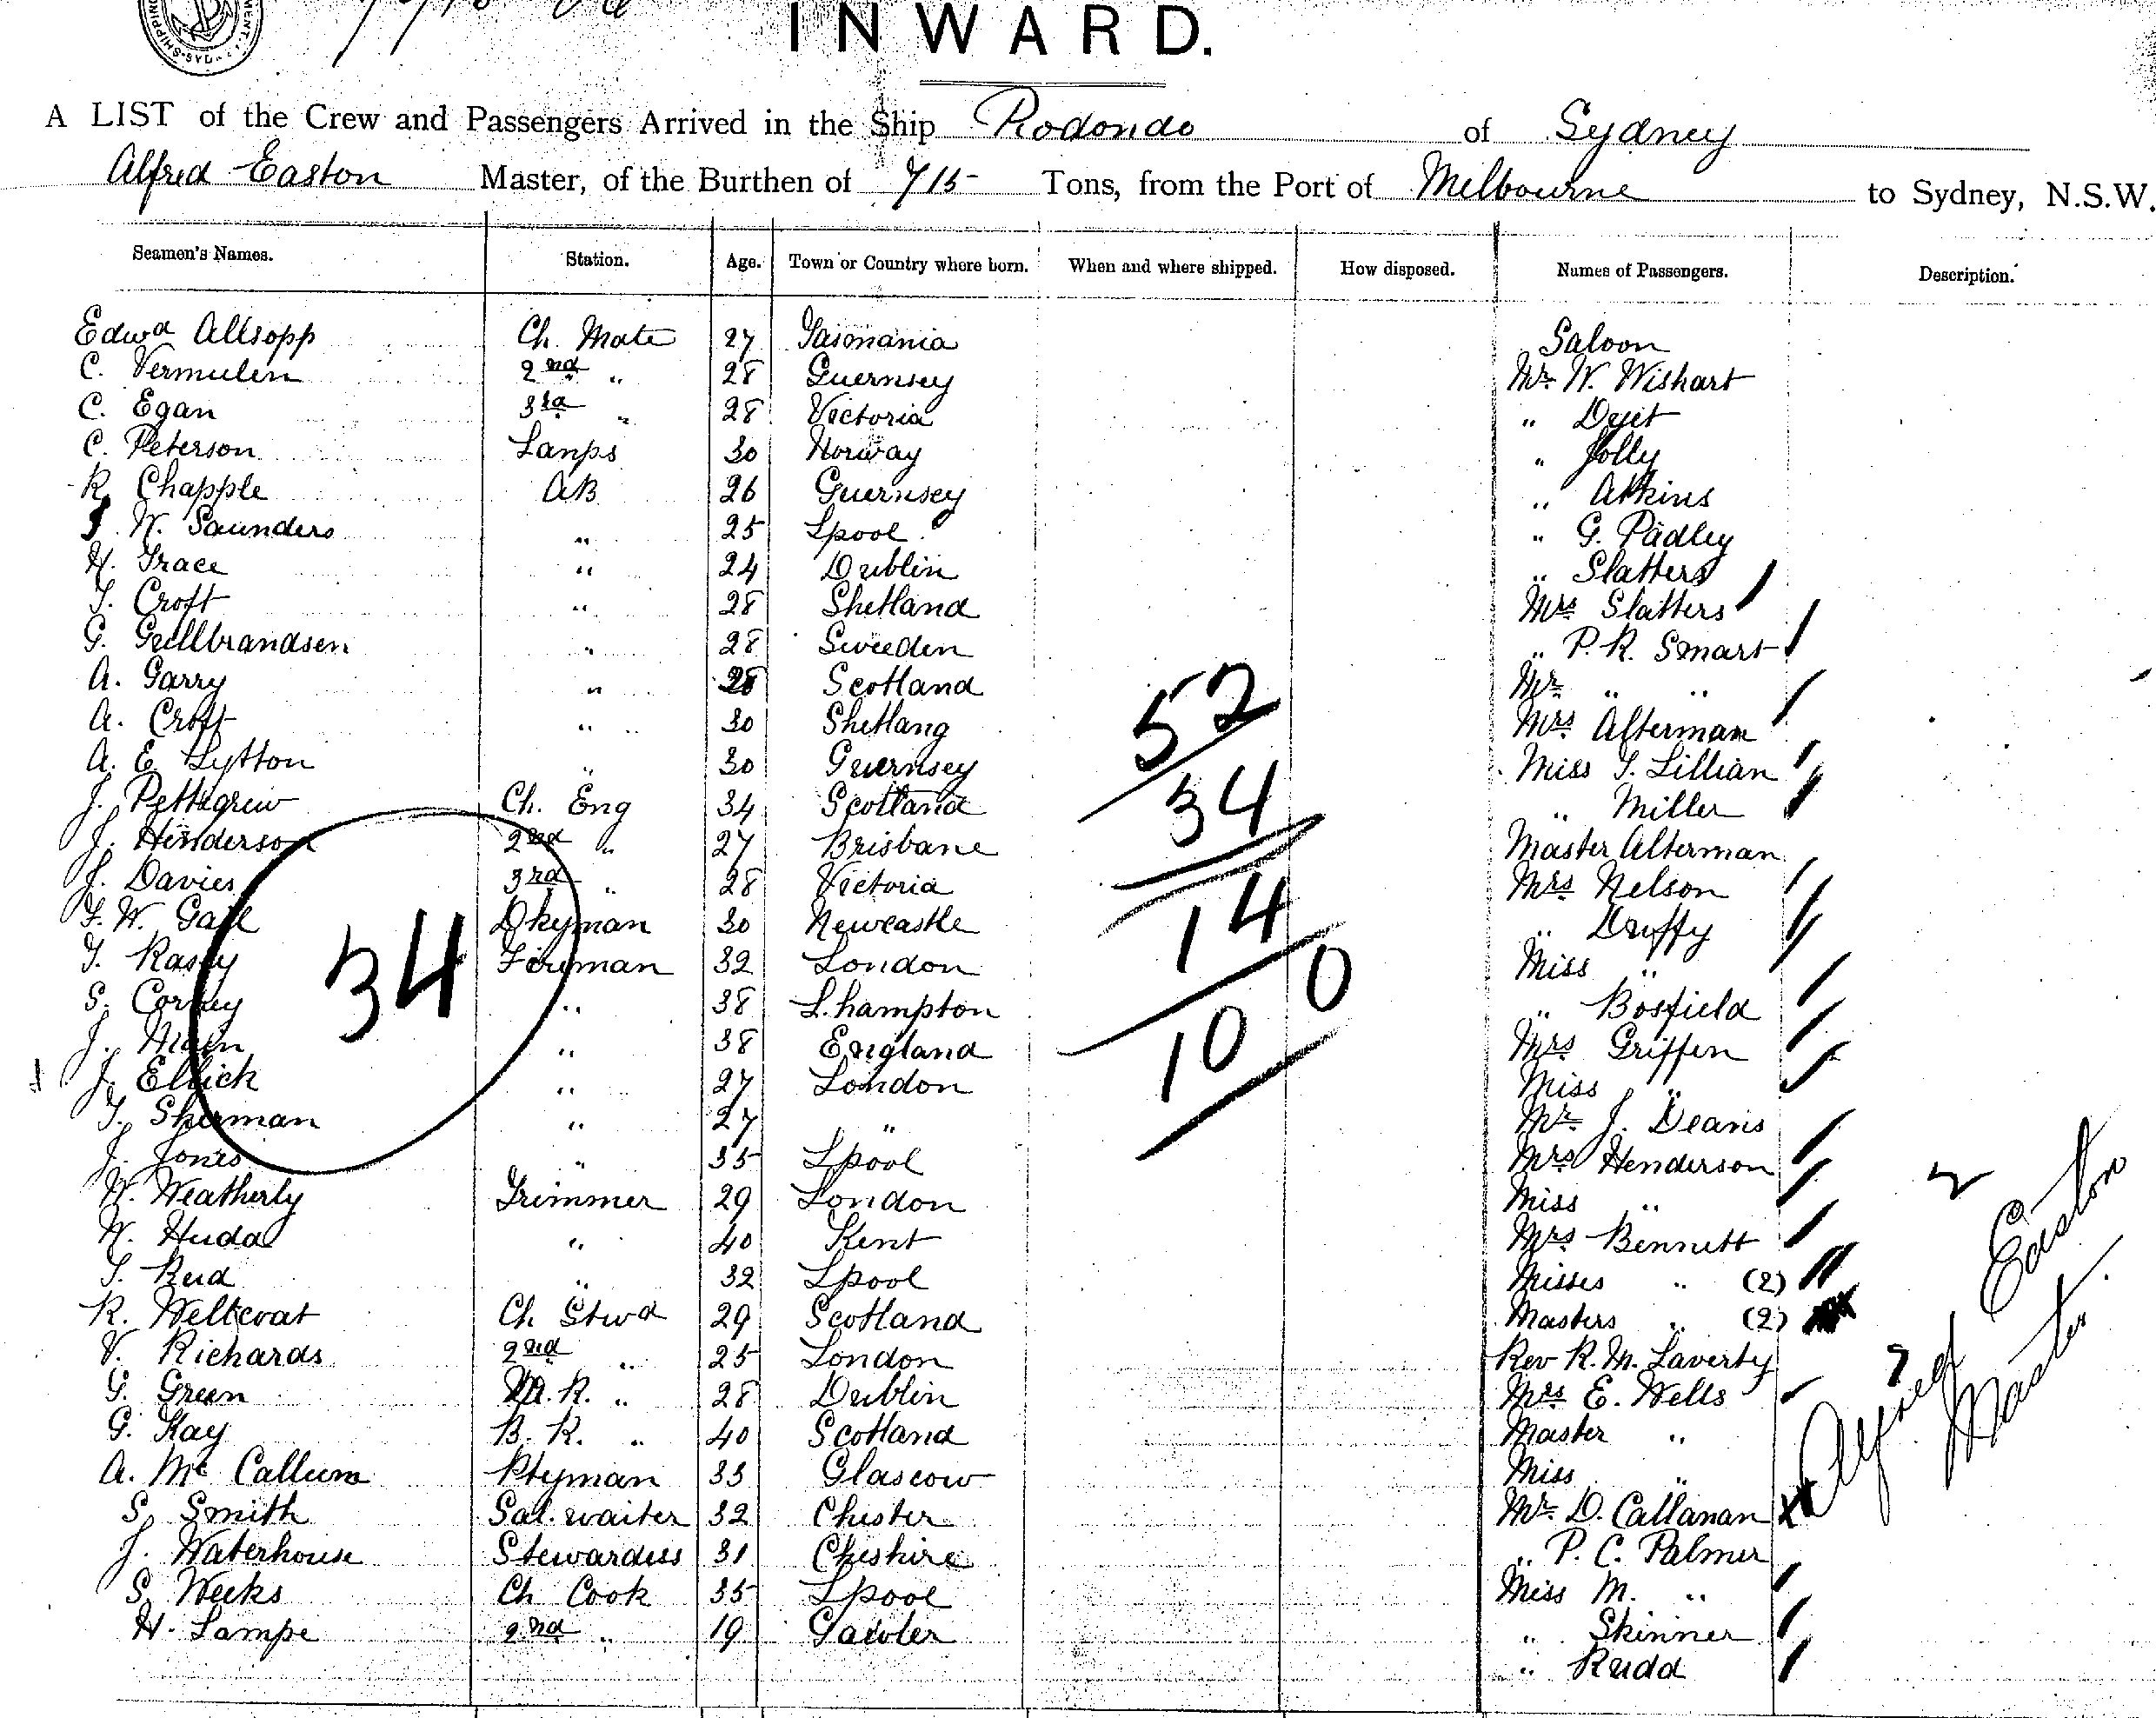 INWARD.
A LIST of the Crew and Passengers Arrived in the Ship Rodondo of Sydney
Alfred Easton Master, of the Burthen of 715 Tons, from the Port of Melbourne to Sydney, N.S.W.
Seamen's Names. Station. Age. Town or Country where born. When and where shipped. How disposed. Names of Passengers. Description.
Edwd Allsopp Ch. Mate 27 Tasmania Saloon
C. Vermulen 2nd " 28 Guernsey Mr. W. Wishart
C. Egan 3rd " 28 Victoria " Dyet
C. Peterson Lamps 30 Norway " Jolly
R. Chapple AB 26 Guernsey " Atkins
J. W. Saunders " 25 Lpool " G. Padley
H. Trace " 24 Dublin " Slatters
T. Croft " 28 Shetland Mrs Slatters
G. Gullbrandsen " 28 Sweeden " P. R. Smart
A. Garry " 28 Scotland Mr " "
A. Croft " 30 Shetlang Mrs Alterman
A. E. Lytton " 30 Guernsey Miss T. Lillian
J. Pettigrew Ch. Eng 34 Scotland " Miller
J. Henderson 2nd " 27 Brisbane Master Alterman
J. Davies 3rd " 28 Victoria Mrs Nelson
F. W. Gail Dkyman 30 Newcastle " Druffy
T. Fireman 32 London Miss "
S. " 38 L.hampton " Bosfield
J. " 38 England Mrs Griffen
J. Ellick " 27 London Miss "
T. Sherman " 27 " Mr. J. Deans
J. Jones " 35 Lpool Mrs Henderson
W. Weatherly Trimmer 29 London Miss "
W. Huda " 40 Kent Mrs Bennett
T. Reid " 32 Lpool Misses " (2)
R. Weltcoat Ch Stwd 29 Scotland Masters " (2)
V. Richards 2nd " 25 London Rev R. M. Laverty
G. Green M. R. " 28 Dublin Mrs E. Wells
G. Kay B. R. " 40 Scotland Master "
A. Mc Callum Ptyman 33 Glascow Miss "
S. Smith Sal. waiter 32 Chester Mr. D. Callanan
J. Waterhouse Stewardess 31 Cheshire " P. C. Palmer
S. Weeks Ch Cook 35 Lpool Miss M. "
H. Lampe 2nd " 19 Gawler " Skinner
" Rudd
34
52
34
14
0
10
Alfred Easton
Master